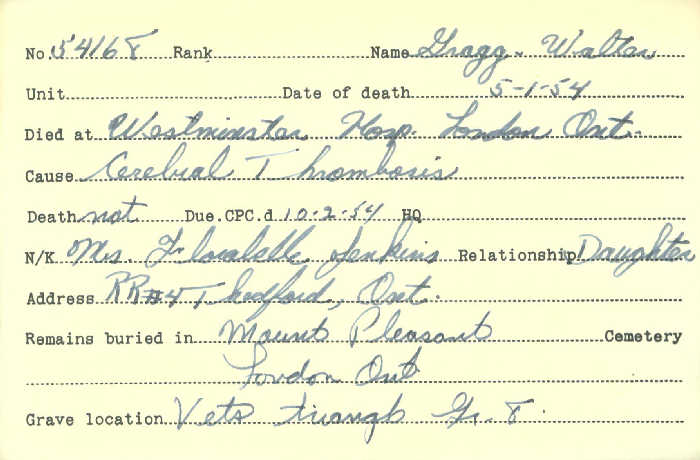 No. 54168 Rank Name Gragg - Walter
Unit Date of death 5-1-54
Died at Westminster Hosp. London Ont.
Cause Cerebral Thrombosis
Death not Due. CPC.d 10-2-54 HQ
N/K Mrs. Florabelle Jenkins Relationship Daughter
Address RR#4 Thedford, Ont.
Remains buried in Mount Pleasant Cemetery
London Ont
Grave location Vets triangle Gr. 8.